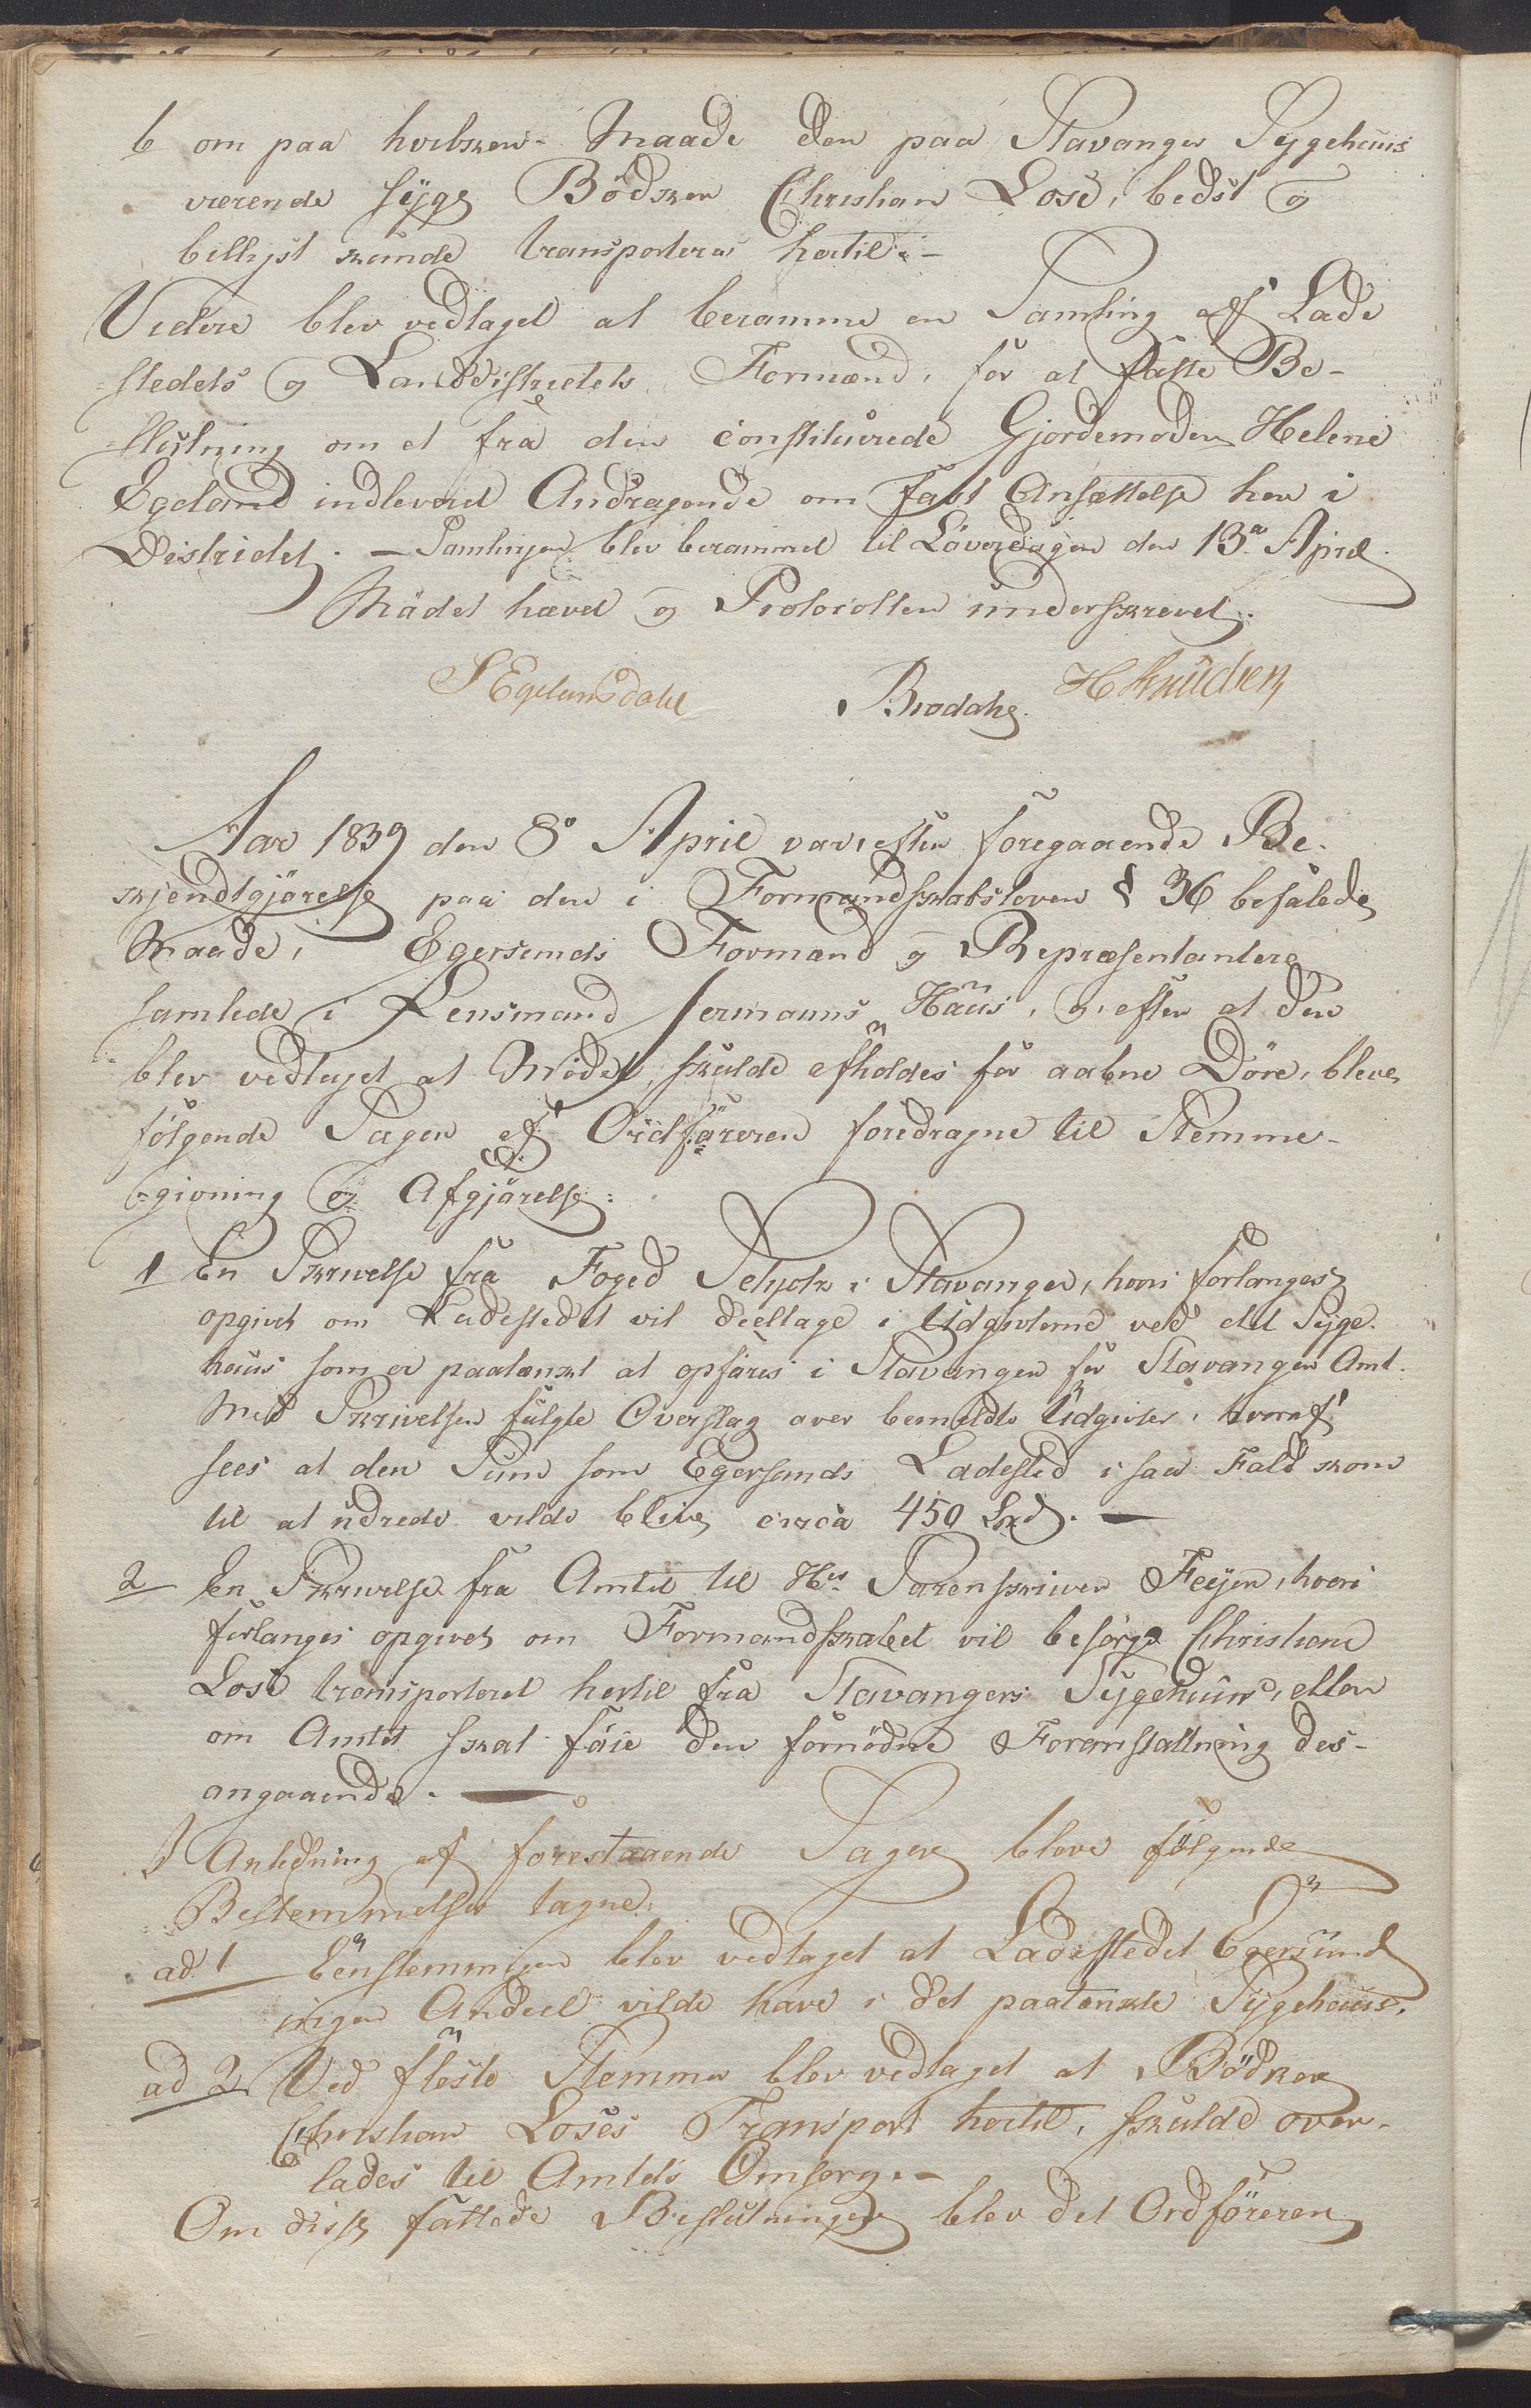 b om paa hvilken Maade den paa Stavanger Sygehuus
værende syge Bødker Christian Lose, bedst og
billigst kunde transporteres hertil. -
Videre blev vedtaget at beramme en Samling af Lade
stedets og Landdistrictets Formænd, for at fatte Be-
slutning om et fra den constituerede Gjordemoder Helene
Egeland indleveret Andragende om fast Ansættelse her i
Districtet. - Samlingen blev berammet til Løverdagen den 13de April.
Mødet hævet og Protocollen underskrevet.
S Egelandsdahl Brodahl. H Knudsen
Aar 1839 den 8de April var, efter foregaaende Be-
kjendtgjørelse paa den i Formandskabsloven § 36 befalede
Maade, Egersunds Formænd og Repræsentantere
samlede i Lensmand Jermanns Huus, og, efter at der
blev vedtaget at Mødet skulde afholdes for aabne Døre, bleve
følgende Sager af Ordføreren foredragne til Stemme-
givning og Afgjørelse:
1 En Skrivelse fra Foged Schjøtz i Stavanger, hvori forlanges
opgivet om Ladestedet vil deeltage i Udgivterne ved det Syge-
huus som er paatænkt at opføres i Stavanger for Stavanger Amt.
Med Skrivelsen fulgte Overslag over bemeldte Udgivter, hvoraf
sees at den Sum som Egersunds Ladested i saa Fald kom
til at udrede vilde blive circa 450 Spd. -
2 En Skrivelse fra Amtet til Hr. Sorenskriver Feyer, hvori
forlanges opgivet om Formandskabet vil besørge Christian
Lose transporteret hertil fra Stavangers Sygehuus, eller
om Amtet skal føie den fornødne Foranstaltning des-
angaaende. -
I Anledning af forestaaende Sager bleve følgende
Bestemmelser tagne:
ad 1 Eenstemmigen blev vedtaget at Ladestedet Egersund
ingen Andeel vilde have i det paatænkte Sygehuus.
ad 2 Ved fleste Stemmer blev vedtaget at Bødker
Christian Loses Transport hertil, skulde over-
lades til Amtets Omsorg. -
Om disse fattede Beslutninger blev det Ordføreren